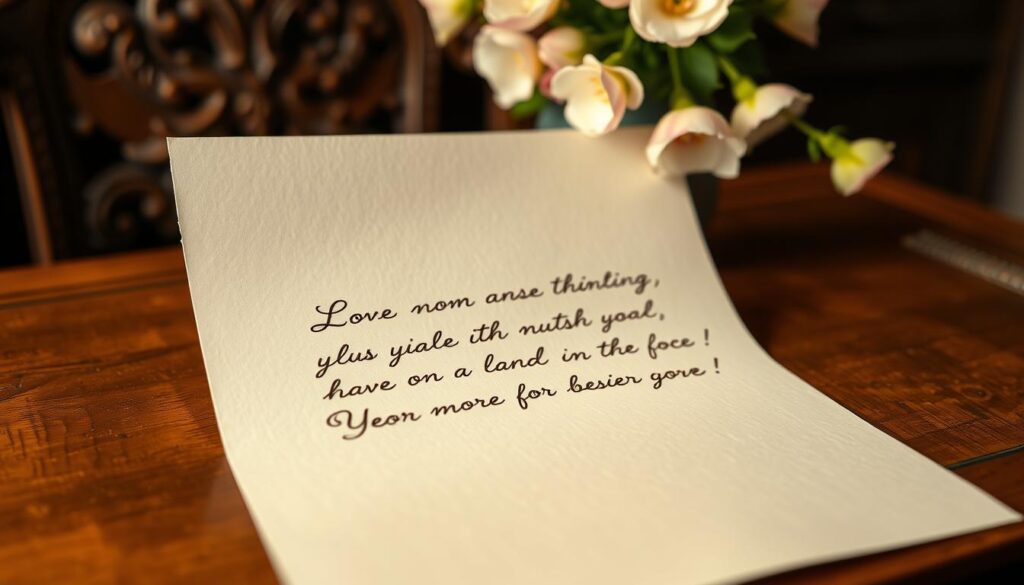 Love nom anse thinting,
ylus yiale ith nutsh yoal,
have on a land in the foce !
Yeor more for besier gore !